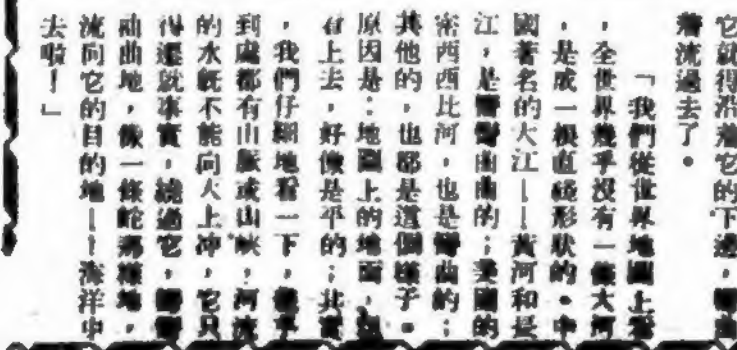 它就得沿着它的下邊,彎曲
着流過去了。
「我們從世界地圖上看
,全世界幾乎沒有一條大河
,是成一根直綫形狀的。中
國著名的大江——黃河和長
江,是彎彎曲曲的;美國的
密西西比河,也是彎曲的;
其他的,也都是這個樣子。
原因是:地圖上的地面,
看上去,好像是平的;其實
,我們仔細地看一下,幾乎
到處都有山脈或山峽,河流
的水旣不能向大上冲,它只
得遷就事實,繞過它,彎彎
曲曲地,像一條蛇蕩樣地,
流向它的目的地——海洋中
去啦!」